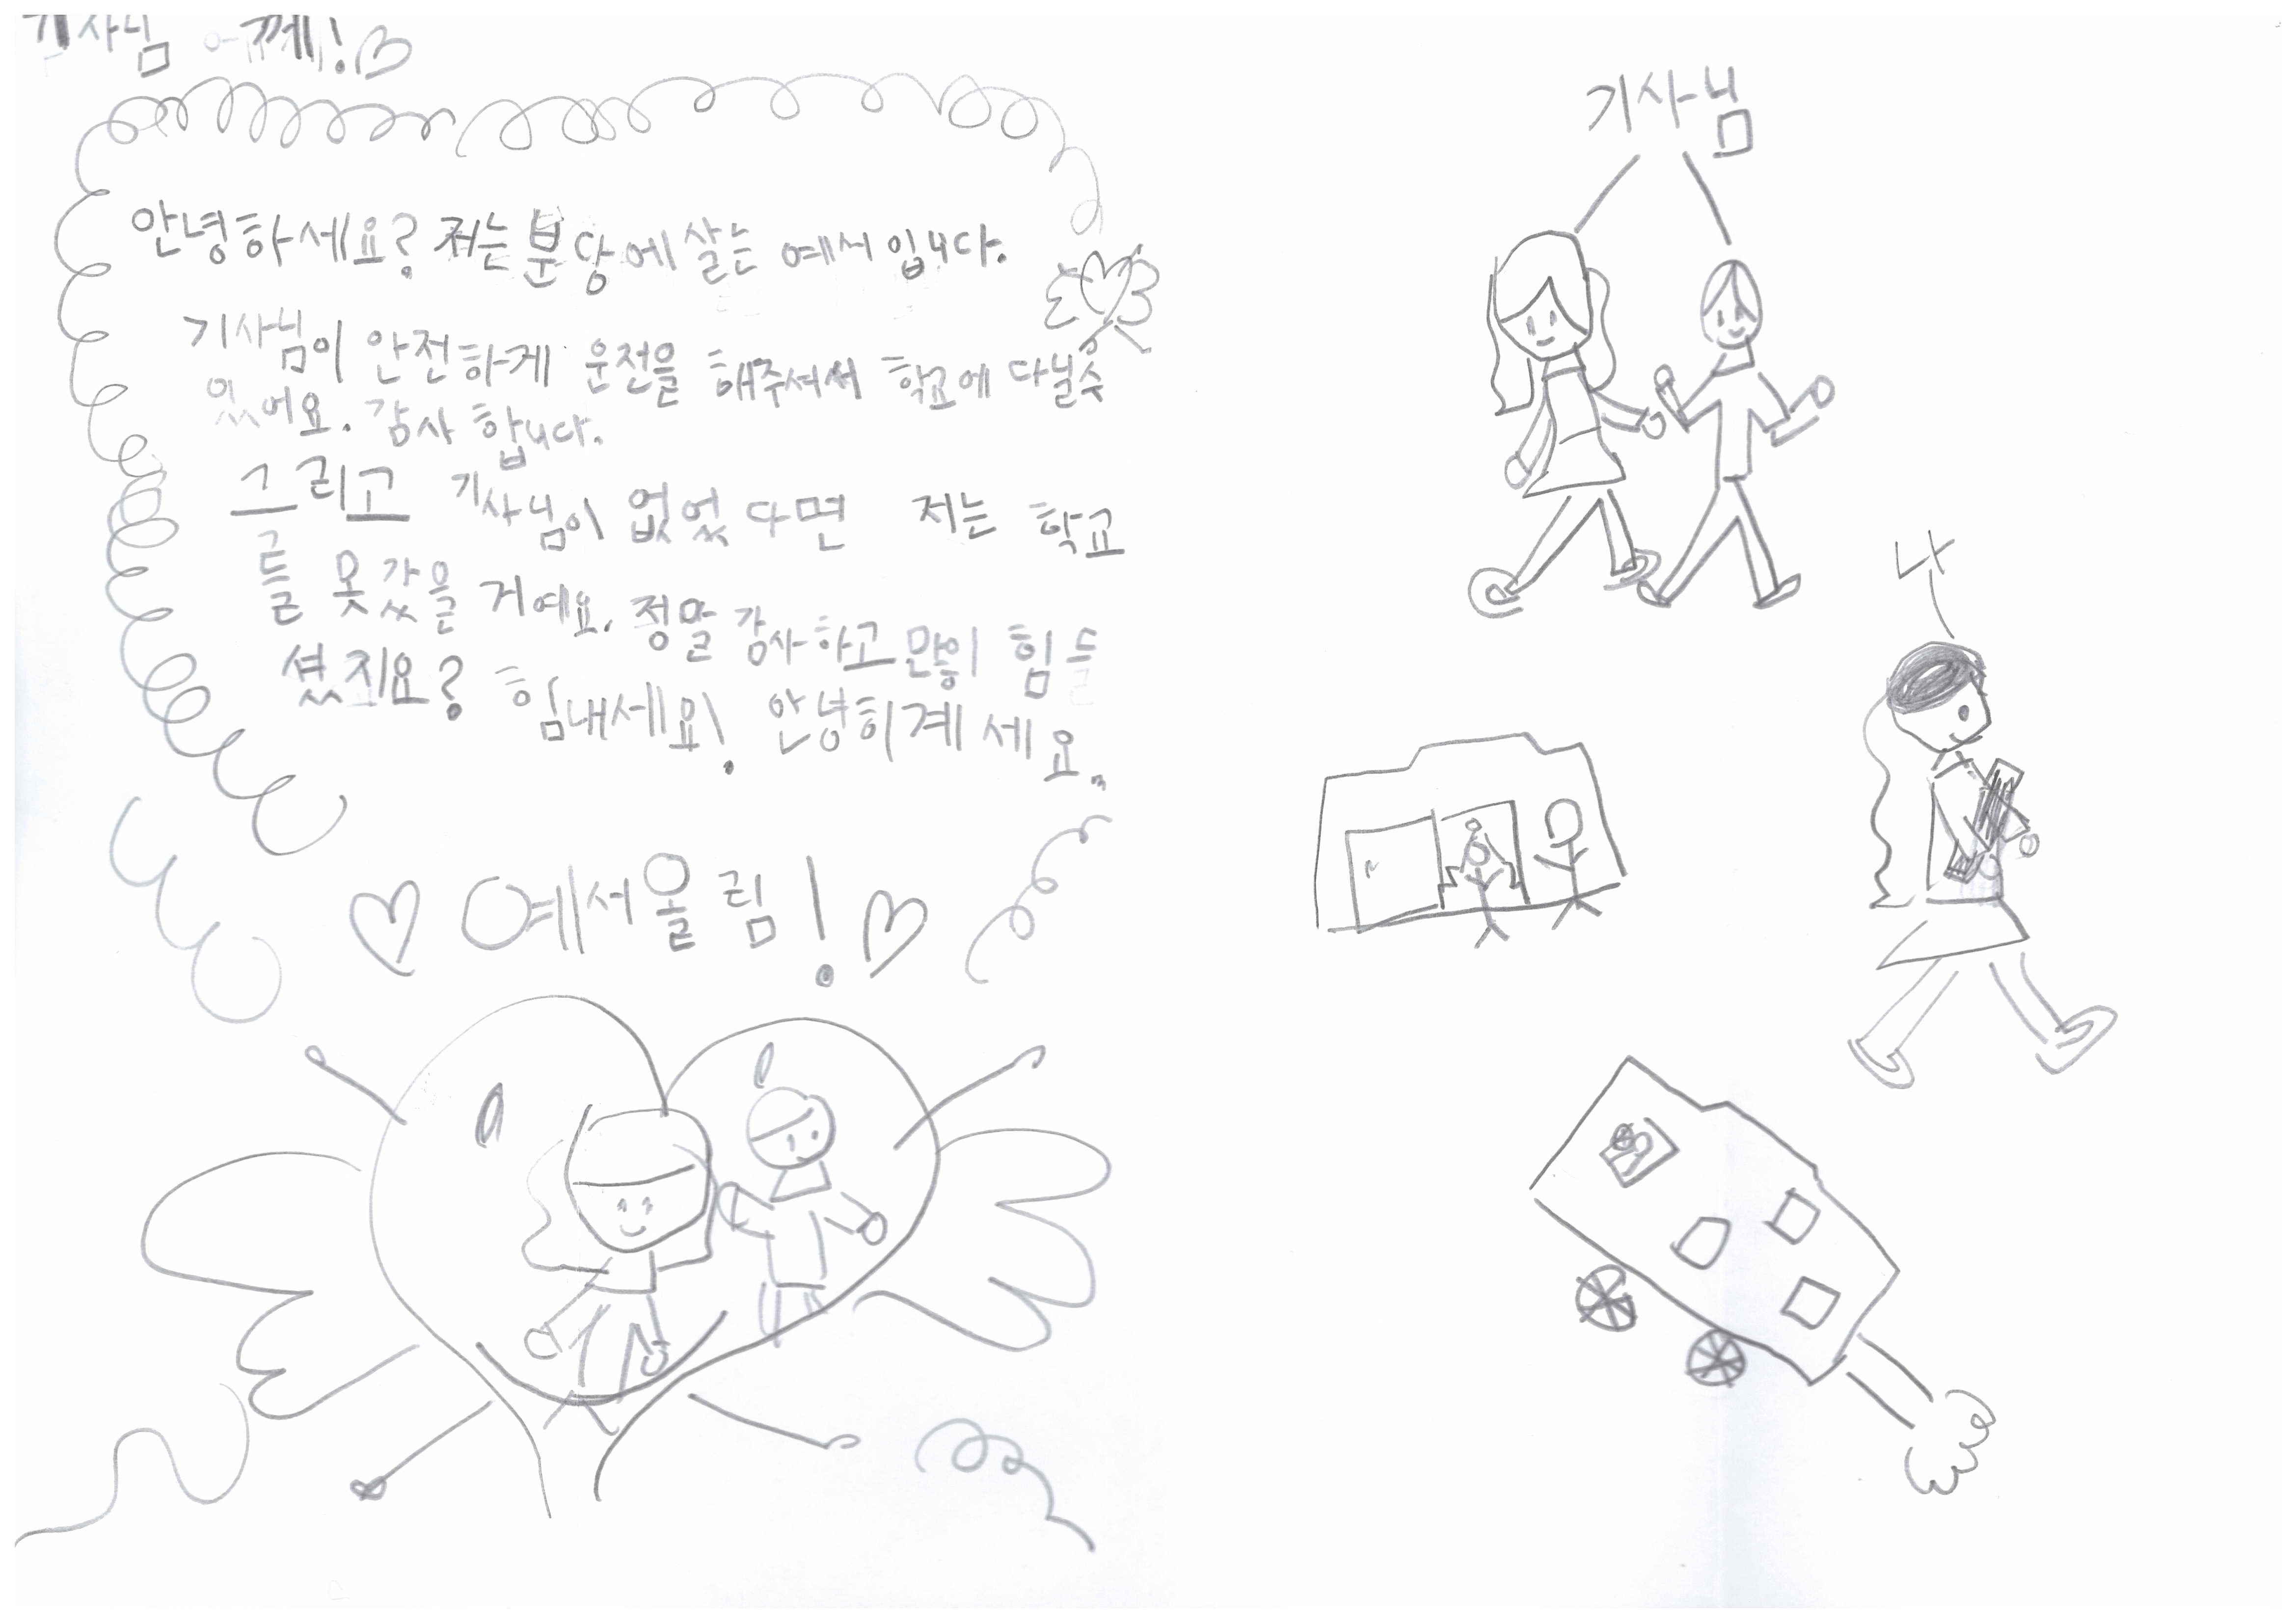 기사님께!
안녕하세요? 저는 분당에 살는 예서입니다.
기사님이 안전하게 운전을 해주셔서 학교에 다닐수
있어요. 감사 합니다.
그리고 기사님이 없었다면 저는 학교
를 못갔을 거예요. 정말 감사하고 많이 힘드
셨지요? 힘내세요! 안녕히계세요.
예서올림!
기사님
나